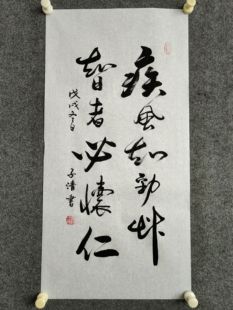 疾風知勁艸
智者必懷仁
戊戌冬日
子清書